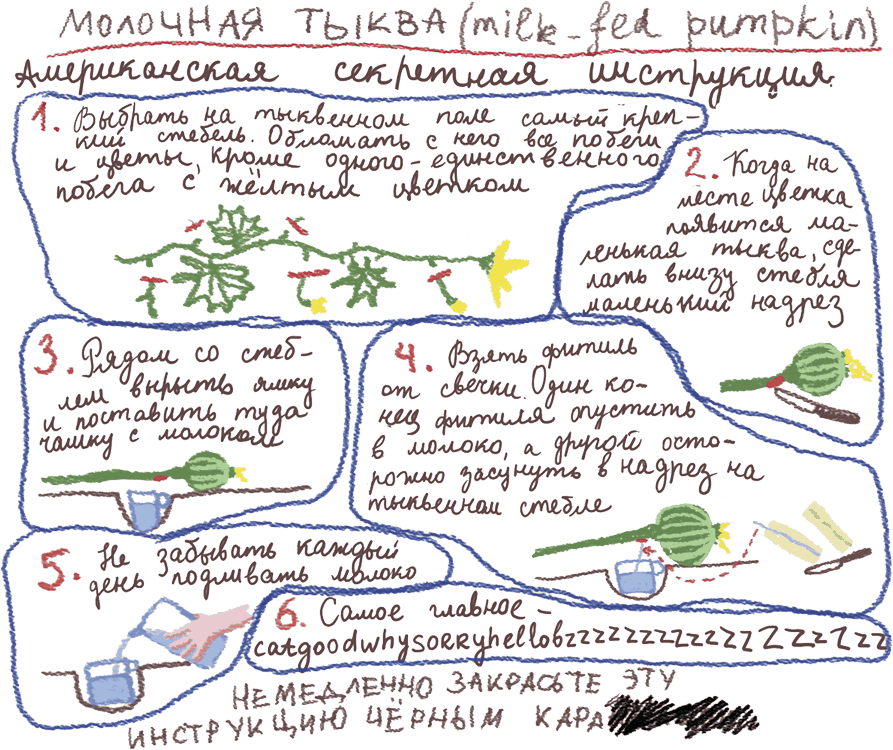 МОЛОЧНАЯ ТЫКВА (milk-fed pumpkin)
Американская секретная инструкция.
1. Выбрать на тыквенном поле самый креп-
кий стебель. Обломать с него все побеги
и цветы, кроме одного-единственного
побега с жёлтым цветком
2. Когда на
месте цветка
появится ма-
ленькая тыква, сде-
лать внизу стебля
маленький надрез
3. Рядом со стеб-
лем вырыть ямку
и поставить туда
чашку с молоком
4. Взять фитиль
от свечки. Один ко-
нец фитиля опустить
в молоко, а другой осто-
рожно засунуть в надрез на
тыквенном стебле
5. Не забывать каждый
день подливать молоко
6. Самое главное –
catgoodwhysorryhellobzzzzzzzzzzzzzzzzz
НЕМЕДЛЕННО ЗАКРАСЬТЕ ЭТУ
ИНСТРУКЦИЮ ЧЁРНЫМ КАРА